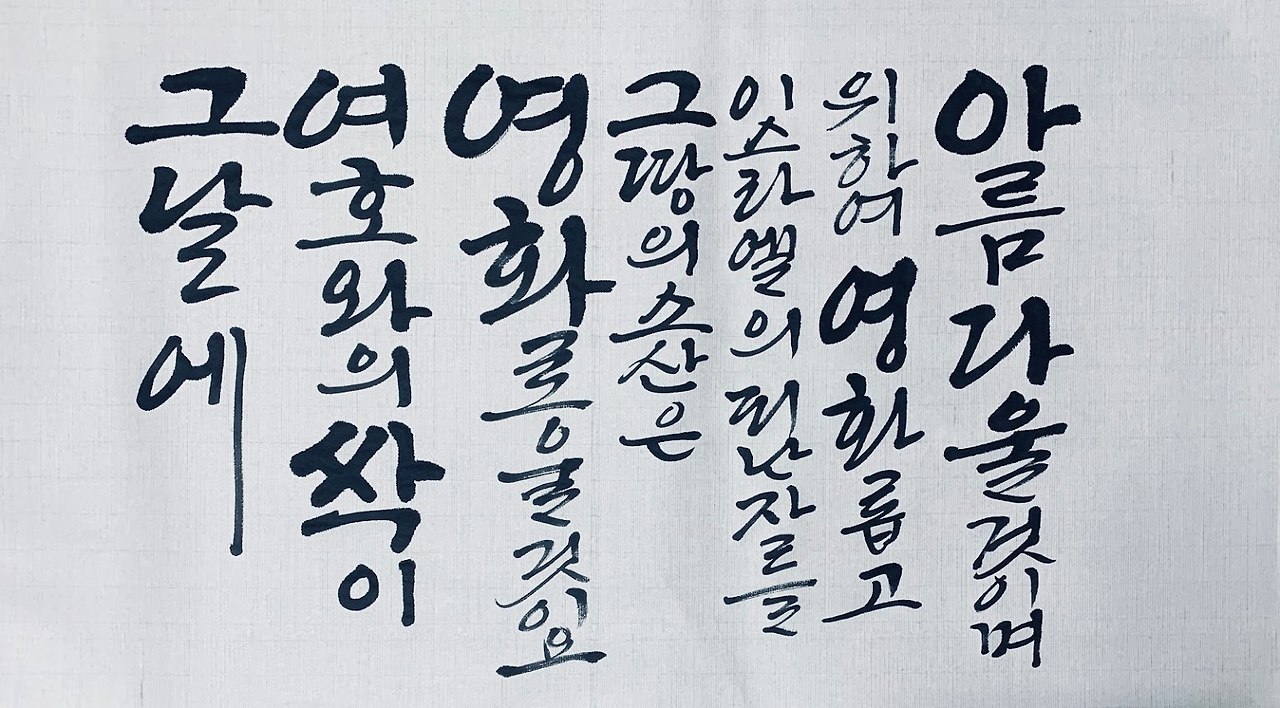 그날에
여호와의싹이
영화로울것이요
그땅의소산은
이스라엘의피난자를
위하여영화롭고
아름다울것이며